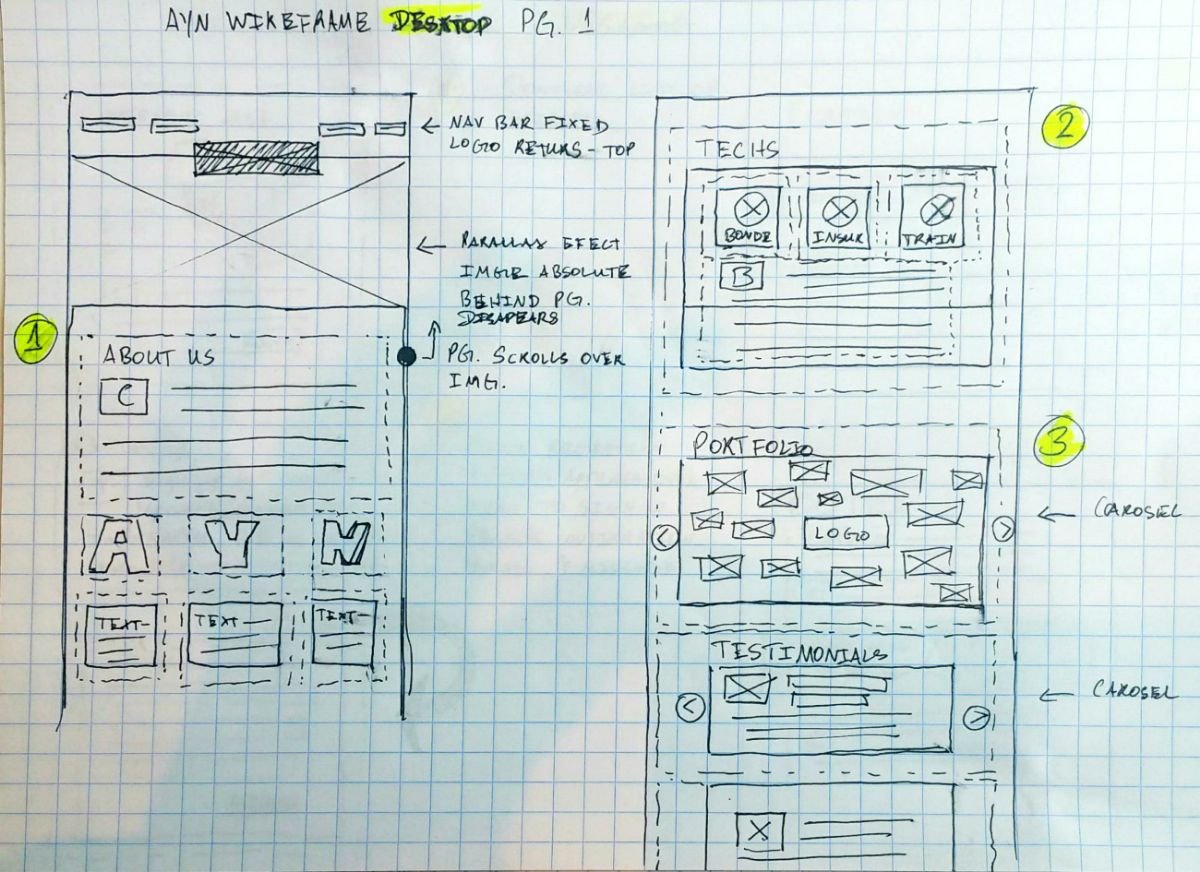 AYN WIREFRAME DESKTOP PG. 1
NAV BAR FIXED
LOGO RETURS - TOP
PARALLAX EFFECT
IMGE ABSOLUTE
BEHIND PG.
DISAPEARS
PG. SCROLLS OVER
IMG.
1
ABOUT US
C
A Y N
TEXT
TEXT
TEXT
2
TECHS
BONDE
INSUR
TRAIN
B
3
PORTFOLIO
LOGO
<
>
CAROSEL
TESTIMONIALS
<
>
CAROSEL